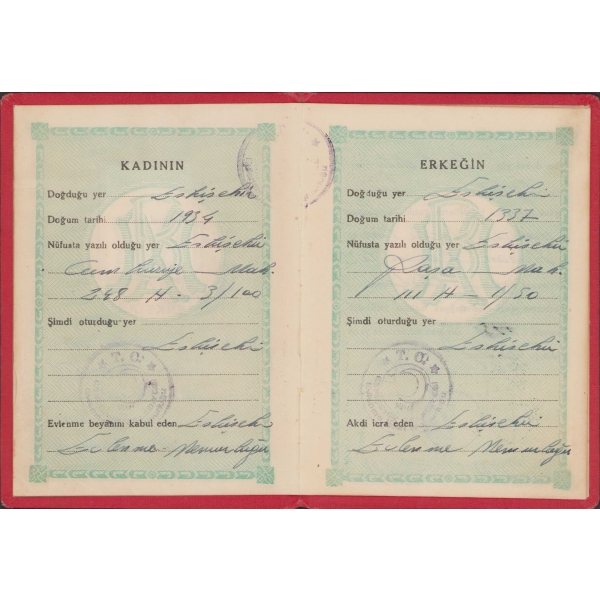 KADININ
Doğduğu yer Eskişehir
Doğum tarihi 1934
Nüfusta yazılı olduğu yer Eskişehir
Cumhuriye Mah.
248 H - 3/100
Şimdi oturduğu yer
Eskişehir
T. C.
Evlenme beyanını kabul eden Eskişehir
Evlenme Memurluğu
ERKEĞİN
Doğduğu yer Eskişehir
Doğum tarihi 1337
Nüfusta yazılı olduğu yer Eskişehir
Paşa Mah.
111 H - 1/50
Şimdi oturduğu yer
Eskişehir
T. C.
Akdi icra eden Eskişehir
Evlenme Memurluğu